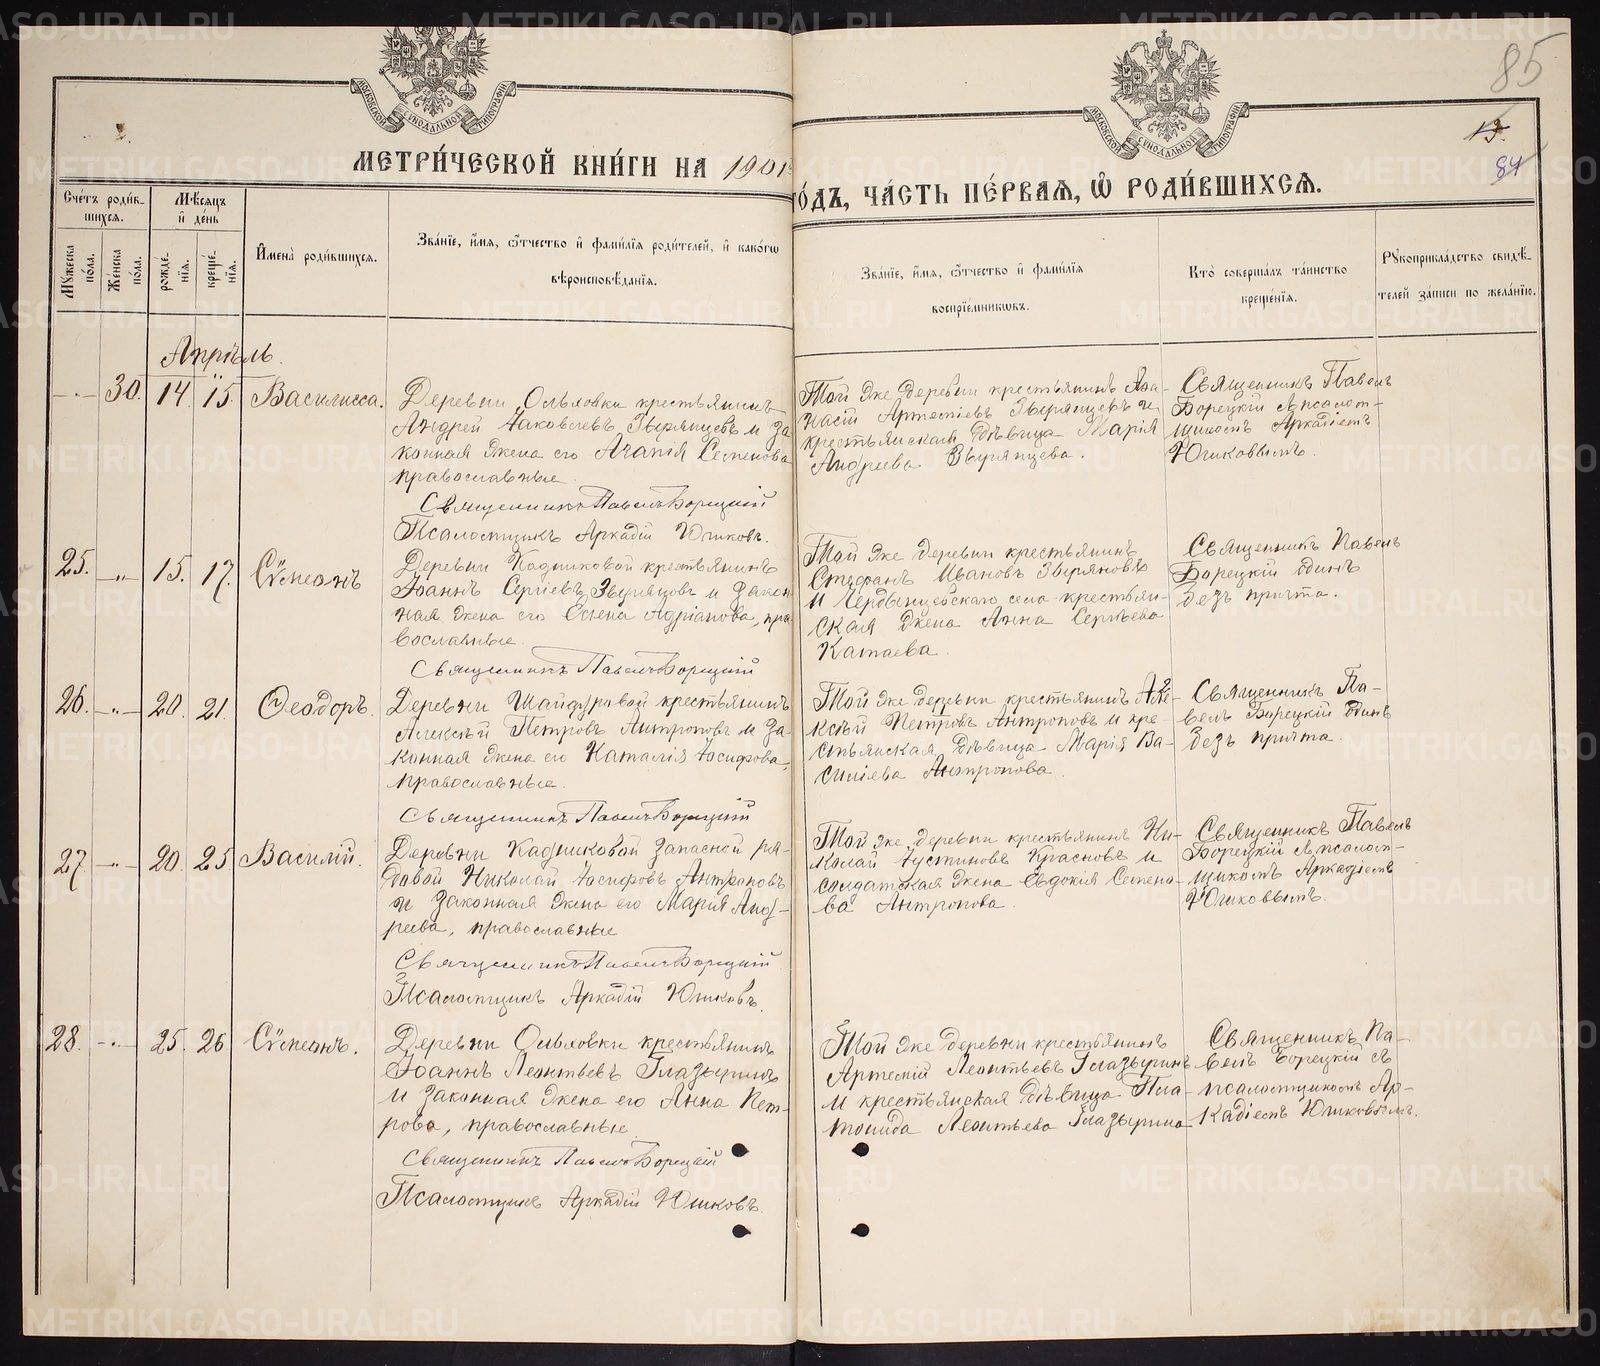 85
13.
84
МЕТРИ́ЧЕСКОЙ КНИ́ГИ НА 1901
ГО́ДЪ, ЧА́СТЬ ПЕ́РВАЯ, Ѡ РОДИ́ВШИХСЯ.
МОСКОВСКОЙ СѴНОДАЛЬНОЙ ТИПОГРАФІИ
МОСКОВСКОЙ СѴНОДАЛЬНОЙ ТИПОГРАФІИ
Сче́тъ роди́в-
шихся.
Мѣ́сяцъ
и де́нь
Мꙋ́жеска
по́ла.
Же́нска
по́ла.
рожде́-
нїя.
креще́-
нїя.
Имена̀ роди́вшихся.
Зва́нїе, и́мя, ѻ҆́тчество и фами́лїя роди́телей, и како́гѡ
вѣроисповѣ́данїя.
Зва́нїе, и́мя, ѻ҆́тчество и фами́лїя
воспрїе́мникѡвъ.
Кто̀ соверша́лъ та́инство
креще́нїя.
Рꙋкоприкла́дство свидѣ́-
телей за́писи по жела́нїю.
Апрѣль.
30. 14. 15. Василисса.
Деревни Ольховки крестьянинъ
Андрей Іаковлевъ Звѣрянцевъ и за-
конная жена его Агапія Семенова
православные.
Священникъ Павелъ Борецкій
Псаломщикъ Аркадій Юшковъ.
Той же деревни крестьянинъ Аѳа-
насій Артеміевъ Звѣрянцевъ и
крестьянская дѣвица Марія
Андреева Звѣрянцева.
Священникъ Павелъ
Борецкій съ псалом-
щикомъ Аркадіемъ
Юшковымъ.
25. 15. 17. Сѷмеонъ
Деревни Кадниковой крестьянинъ
Іоаннъ Сергіевъ и закон-
ная жена его Елена Адріанова, пра-
вославные.
Священникъ Павелъ Борецкій
Той же деревни крестьянинъ
Стефанъ Ивановъ
и села крестьян-
ская жена Анна Сергѣева
Катаева.
Священникъ Павелъ
Борецкій одинъ
безъ причта.
26. 20. 21. Ѳеодоръ.
Деревни Шайдуровой крестьянинъ
Алексѣй Петровъ Антроповъ и за-
конная жена его Наталія Іосифова,
православные.
Священникъ Павелъ Борецкій
Той же деревни крестьянинъ Але-
ксѣй Петровъ Антроповъ и кре-
стьянская дѣвица Марія Ва-
силіева Антропова.
Священникъ Па-
велъ Борецкій одинъ
безъ причта.
27. 20. 25. Василій.
Деревни Кадниковой запасной ря-
довой Николай Іосифовъ Антроповъ
и законная жена его Марія Анд-
реева, православные
Священникъ Павелъ Борецкій
Псаломщикъ Аркадій Юшковъ.
Той же деревни крестьянинъ Ни-
колай Іустиновъ Красновъ и
солдатская жена Евдокія Семено-
ва Антропова.
Священникъ Павелъ
Борецкій съ псалом-
щикомъ Аркадіемъ
Юшковымъ.
28. 25. 26. Сѷмеонъ.
Деревни Ольховки крестьянинъ
Іоаннъ Леонтьевъ Глазыринъ
и законная жена его Анна Пет-
рова, православные.
Священникъ Павелъ Борецкій
Псаломщикъ Аркадій Юшковъ.
Той же деревни крестьянинъ
Артемій Леонтьевъ Глазыринъ
и крестьянская дѣвица Пла-
тонида Леонтьева Глазырина
Священникъ Па-
велъ Борецкій съ
псаломщикомъ Ар-
кадіемъ Юшковымъ.
METRIKI.GASO-URAL.RU